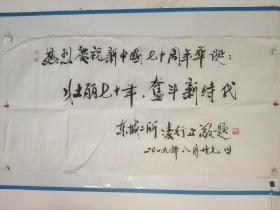 热烈庆祝新中国七十周年华诞：
壮丽七十年，奋斗新时代
东城二所 凌行正 敬题
二〇一九年八月廿九日